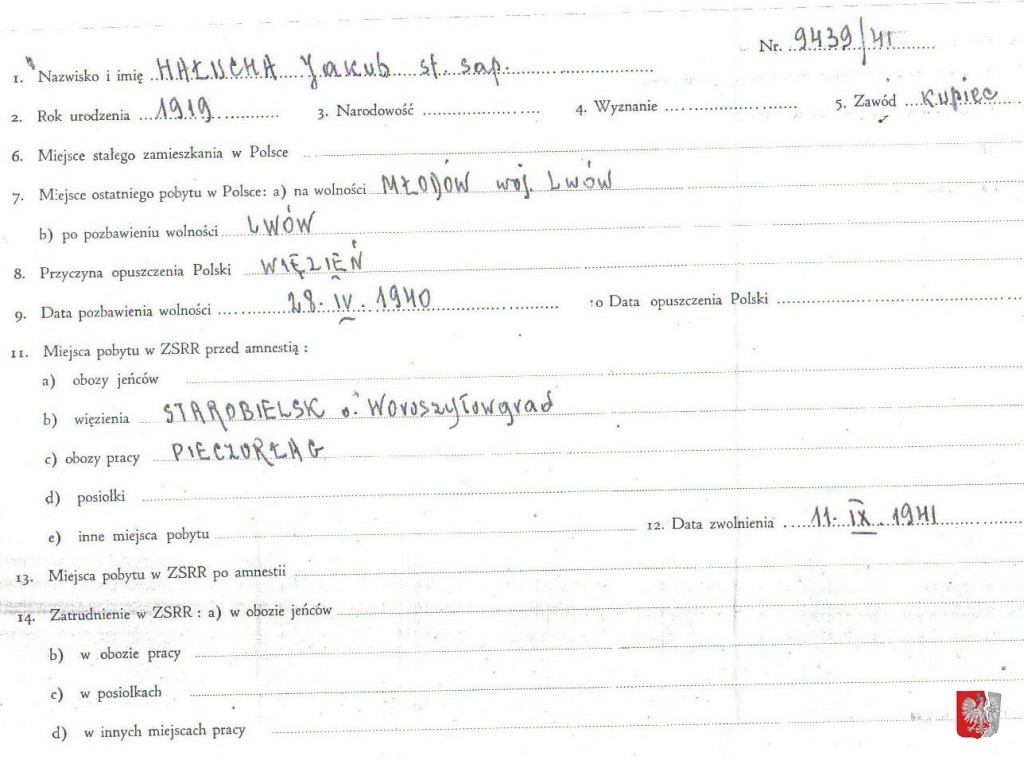 Nr. 9439/41
1. Nazwisko i imię HAŁUCHA Jakub st. sap.
2. Rok urodzenia 1919 3. Narodowość 4. Wyznanie 5. Zawód Kupiec
6. Miejsce stałego zamieszkania w Polsce
7. Miejsce ostatniego pobytu w Polsce: a) na wolności MŁODÓW woj. Lwów
b) po pozbawieniu wolności LWÓW
8. Przyczyna opuszczenia Polski WIĘZIEŃ
9. Data pozbawienia wolności 28. IV. 1940 10 Data opuszczenia Polski
11. Miejsca pobytu w ZSRR przed amnestią :
a) obozy jeńców
b) więzienia STAROBIELSK o. Woroszyłowgrad
c) obozy pracy PIECZORŁAG
d) posiołki
e) inne miejsca pobytu 12. Data zwolnienia 11. IX. 1941
13. Miejsca pobytu w ZSRR po amnestii
14. Zatrudnienie w ZSRR : a) w obozie jeńców
b) w obozie pracy
c) w posiołkach
d) w innych miejscach pracy